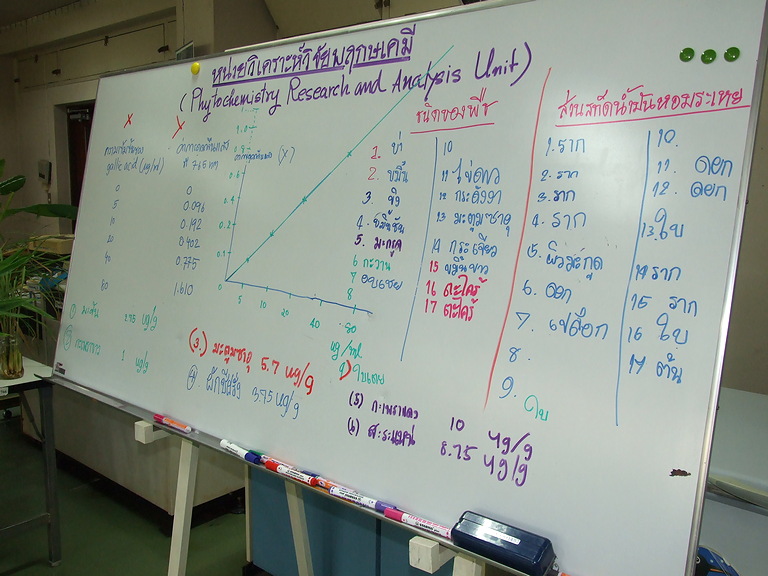 หน่วยวิเคราะห์วิจัยพฤกษเคมี
(Phytochemistry Research and Analysis Unit)
X
Y
ความเข้มข้นของ
gallic acid (µg/ml)
ค่าการดูดกลืนแสง
ที่ 765 nm
0 0
5 0.096
10 0.192
20 0.402
40 0.775
80 1.610
0.6
0.4
0.2
0
(Y)
5 10 20 40 80
µg/ml
ชนิดของพืช
1. ข่า
2. ขมิ้น
3. ขิง
4. ขมิ้นชัน
5. มะกรูด
6 กะวาน
7 อบเชย
8
9) ใบเตย
10
11 ไข่ดพว
12 กระดังงา
13 มะตูมซาอุ
14 กระเจียว
15 ขมิ้นขาว
16 ตะไคร้
17 ตะไคร้
ส่วนสกัดน้ำมันหอมระเหย
1. ราก
2. ราก
3. ราก
4. ราก
5. ผิวมะกูด
6. ดอก
7. เปลือก
8.
9. ใบ
10.
11. ดอก
12. ดอก
13. ใบ
14 ราก
15 ราก
16 ใบ
17 ต้น
① 2.75 µg/g
② 1 µg/g
(3.) มะตูมซาอุ 5.7 µg/g
④ ผักชีฝรั่ง 3.75 µg/g
(5) กะเพราแดง 10 µg/g
(6) สะระแหน่ 8.75 µg/g